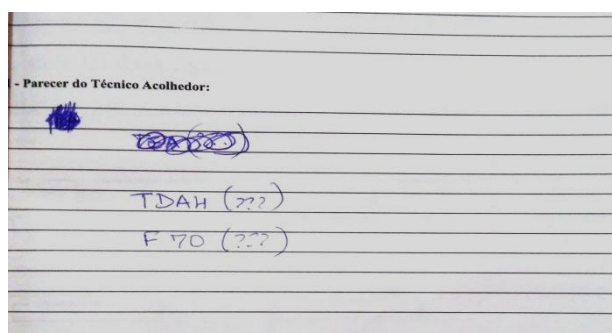 - Parecer do Técnico Acolhedor:
TDAH (???)
F 70 (???)